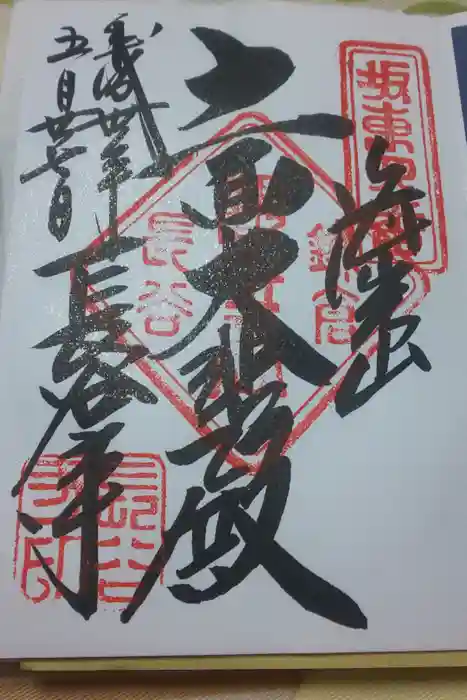 坂東四番
海光山
十一面大悲殿
鎌倉
長谷
平成卅年
五月廿七日
長谷寺
長谷寺印